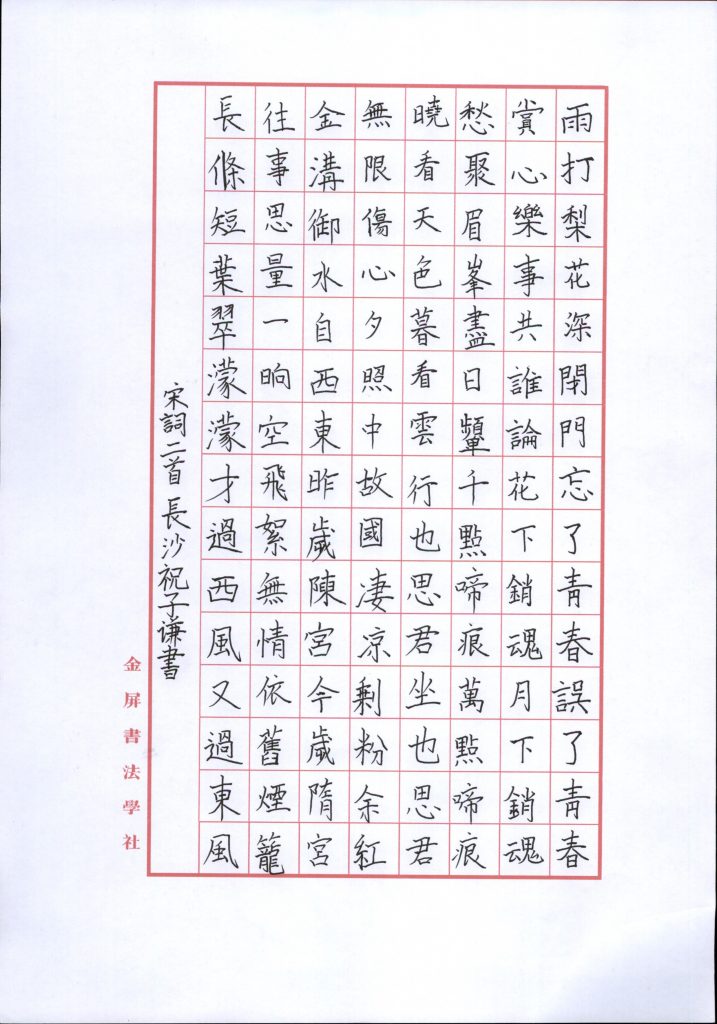 雨打梨花深閉門忘了青春誤了青春
賞心樂事共誰論花下銷魂月下銷魂
愁聚眉峯盡日顰千點啼痕萬點啼痕
曉看天色暮看雲行也思君坐也思君
無限傷心夕照中故國凄凉剩粉余紅
金溝御水自西東昨歲陳宮今歲隋宮
往事思量一晌空飛絮無情依舊煙籠
長條短葉翠濛濛才過西風又過東風
宋詞二首 長沙祝子谦書
金屏書法學社